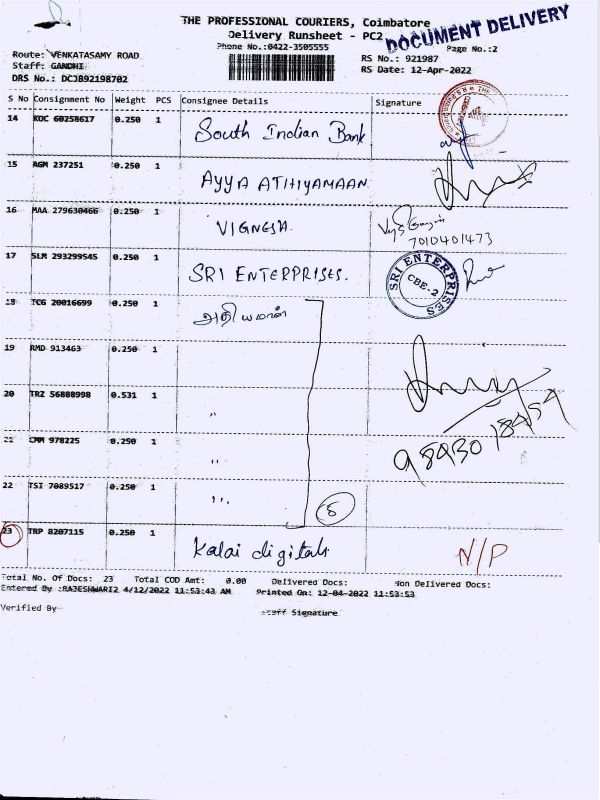 THE PROFESSIONAL COURIERS, Coimbatore
Delivery Runsheet - PC2
DOCUMENT DELIVERY
Phone No.:0422-3505555
Page No.:2
Route: VENKATASAMY ROAD
RS No.: 921987
Staff: GANDHI
RS Date: 12-Apr-2022
DRS No.: DCJ892198702
S No Consignment No Weight PCS Consignee Details Signature
14 KOC 60258617 0.250 1 South Indian Bank
15 AGM 237251 0.250 1 AYYA ATHIYAMAAN
16 MAA 279630466 0.250 1 VIGNESH.
7010401473
17 SLM 293299545 0.250 1 SRI ENTERPRISES.
SRI ENTERPRISES
CBE-2
18 TCG 20016699 0.250 1 அதியமான்
19 RMD 913463 0.250 1
20 TRZ 56808998 0.531 1 "
21 CMM 978225 0.250 1 "
9843018459
22 TSI 7089517 0.250 1 "
8
23 TRP 8207115 0.250 1 Kalai digitals
N/P
Total No. Of Docs: 23 Total COD Amt: 0.00 Delivered Docs: Non Delivered Docs:
Entered By :RAJESHWARI2 4/12/2022 11:53:43 AM Printed On: 12-04-2022 11:53:53
Verified By
Staff Signature